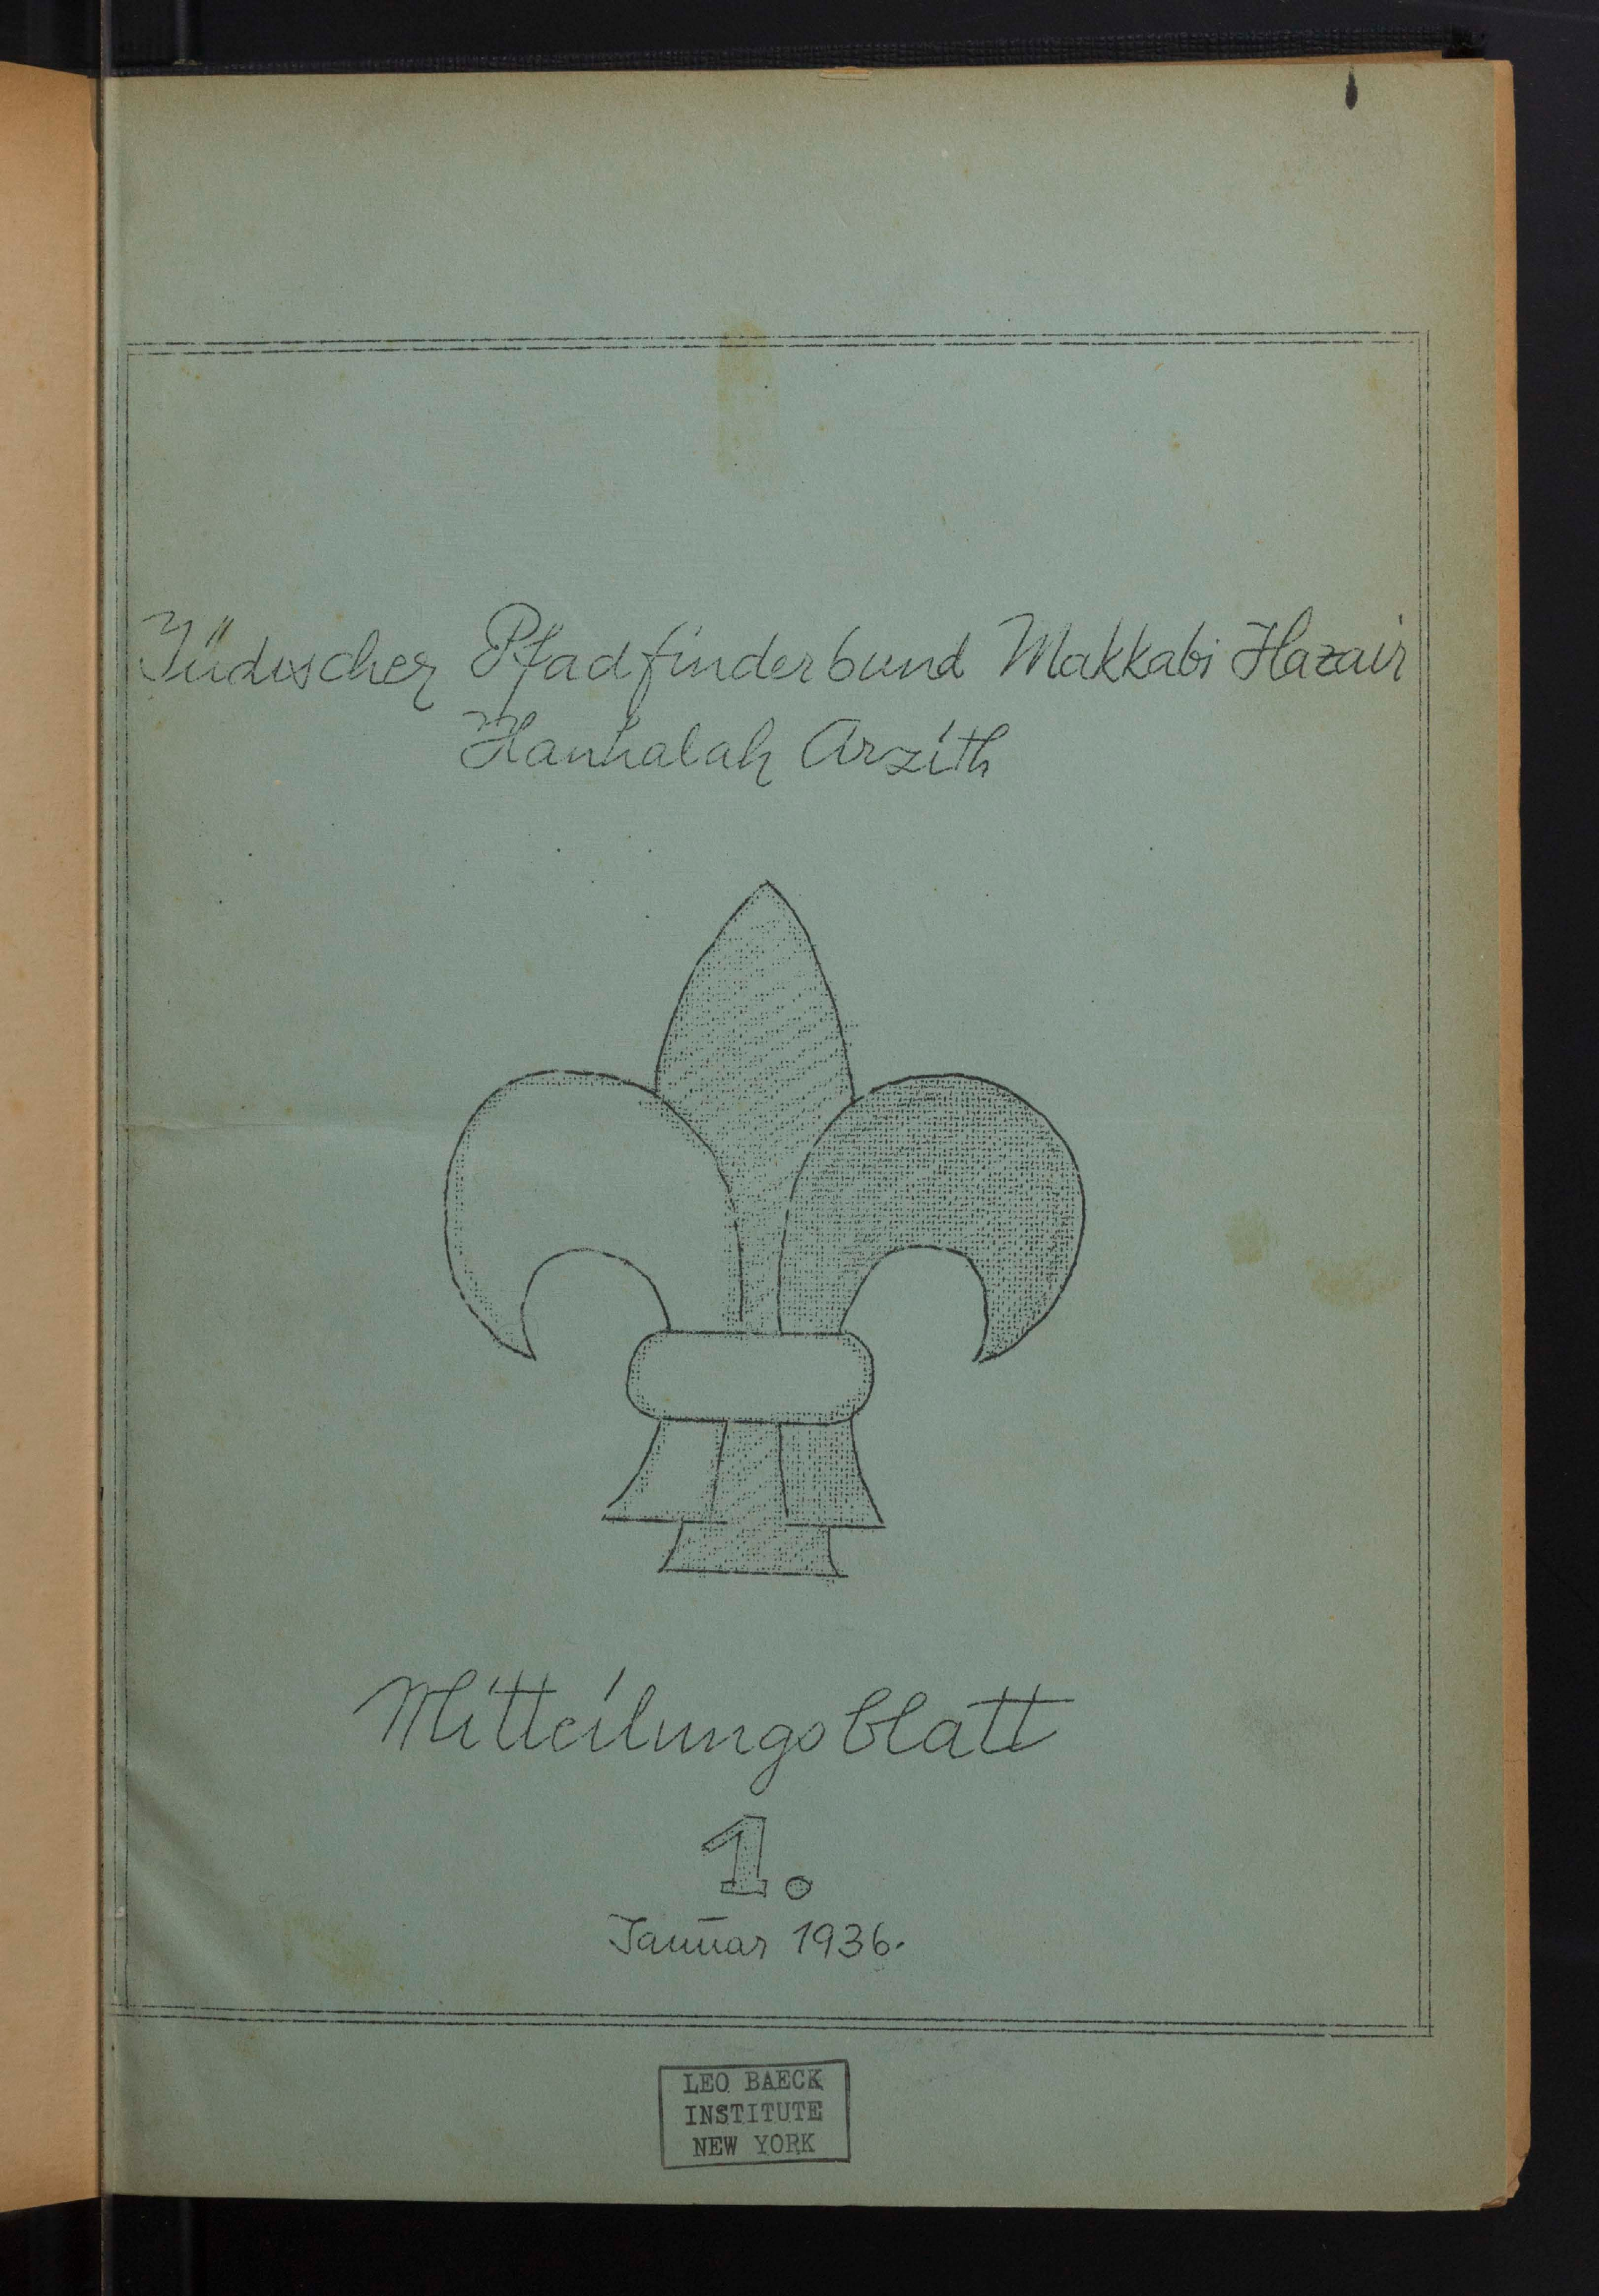 Jüdischer Pfadfinderbund Makkabi Hazair
Hanhalah Arzith
Mitteilungsblatt
1.
Januar 1936.
LEO BAECK
INSTITUTE
NEW YORK